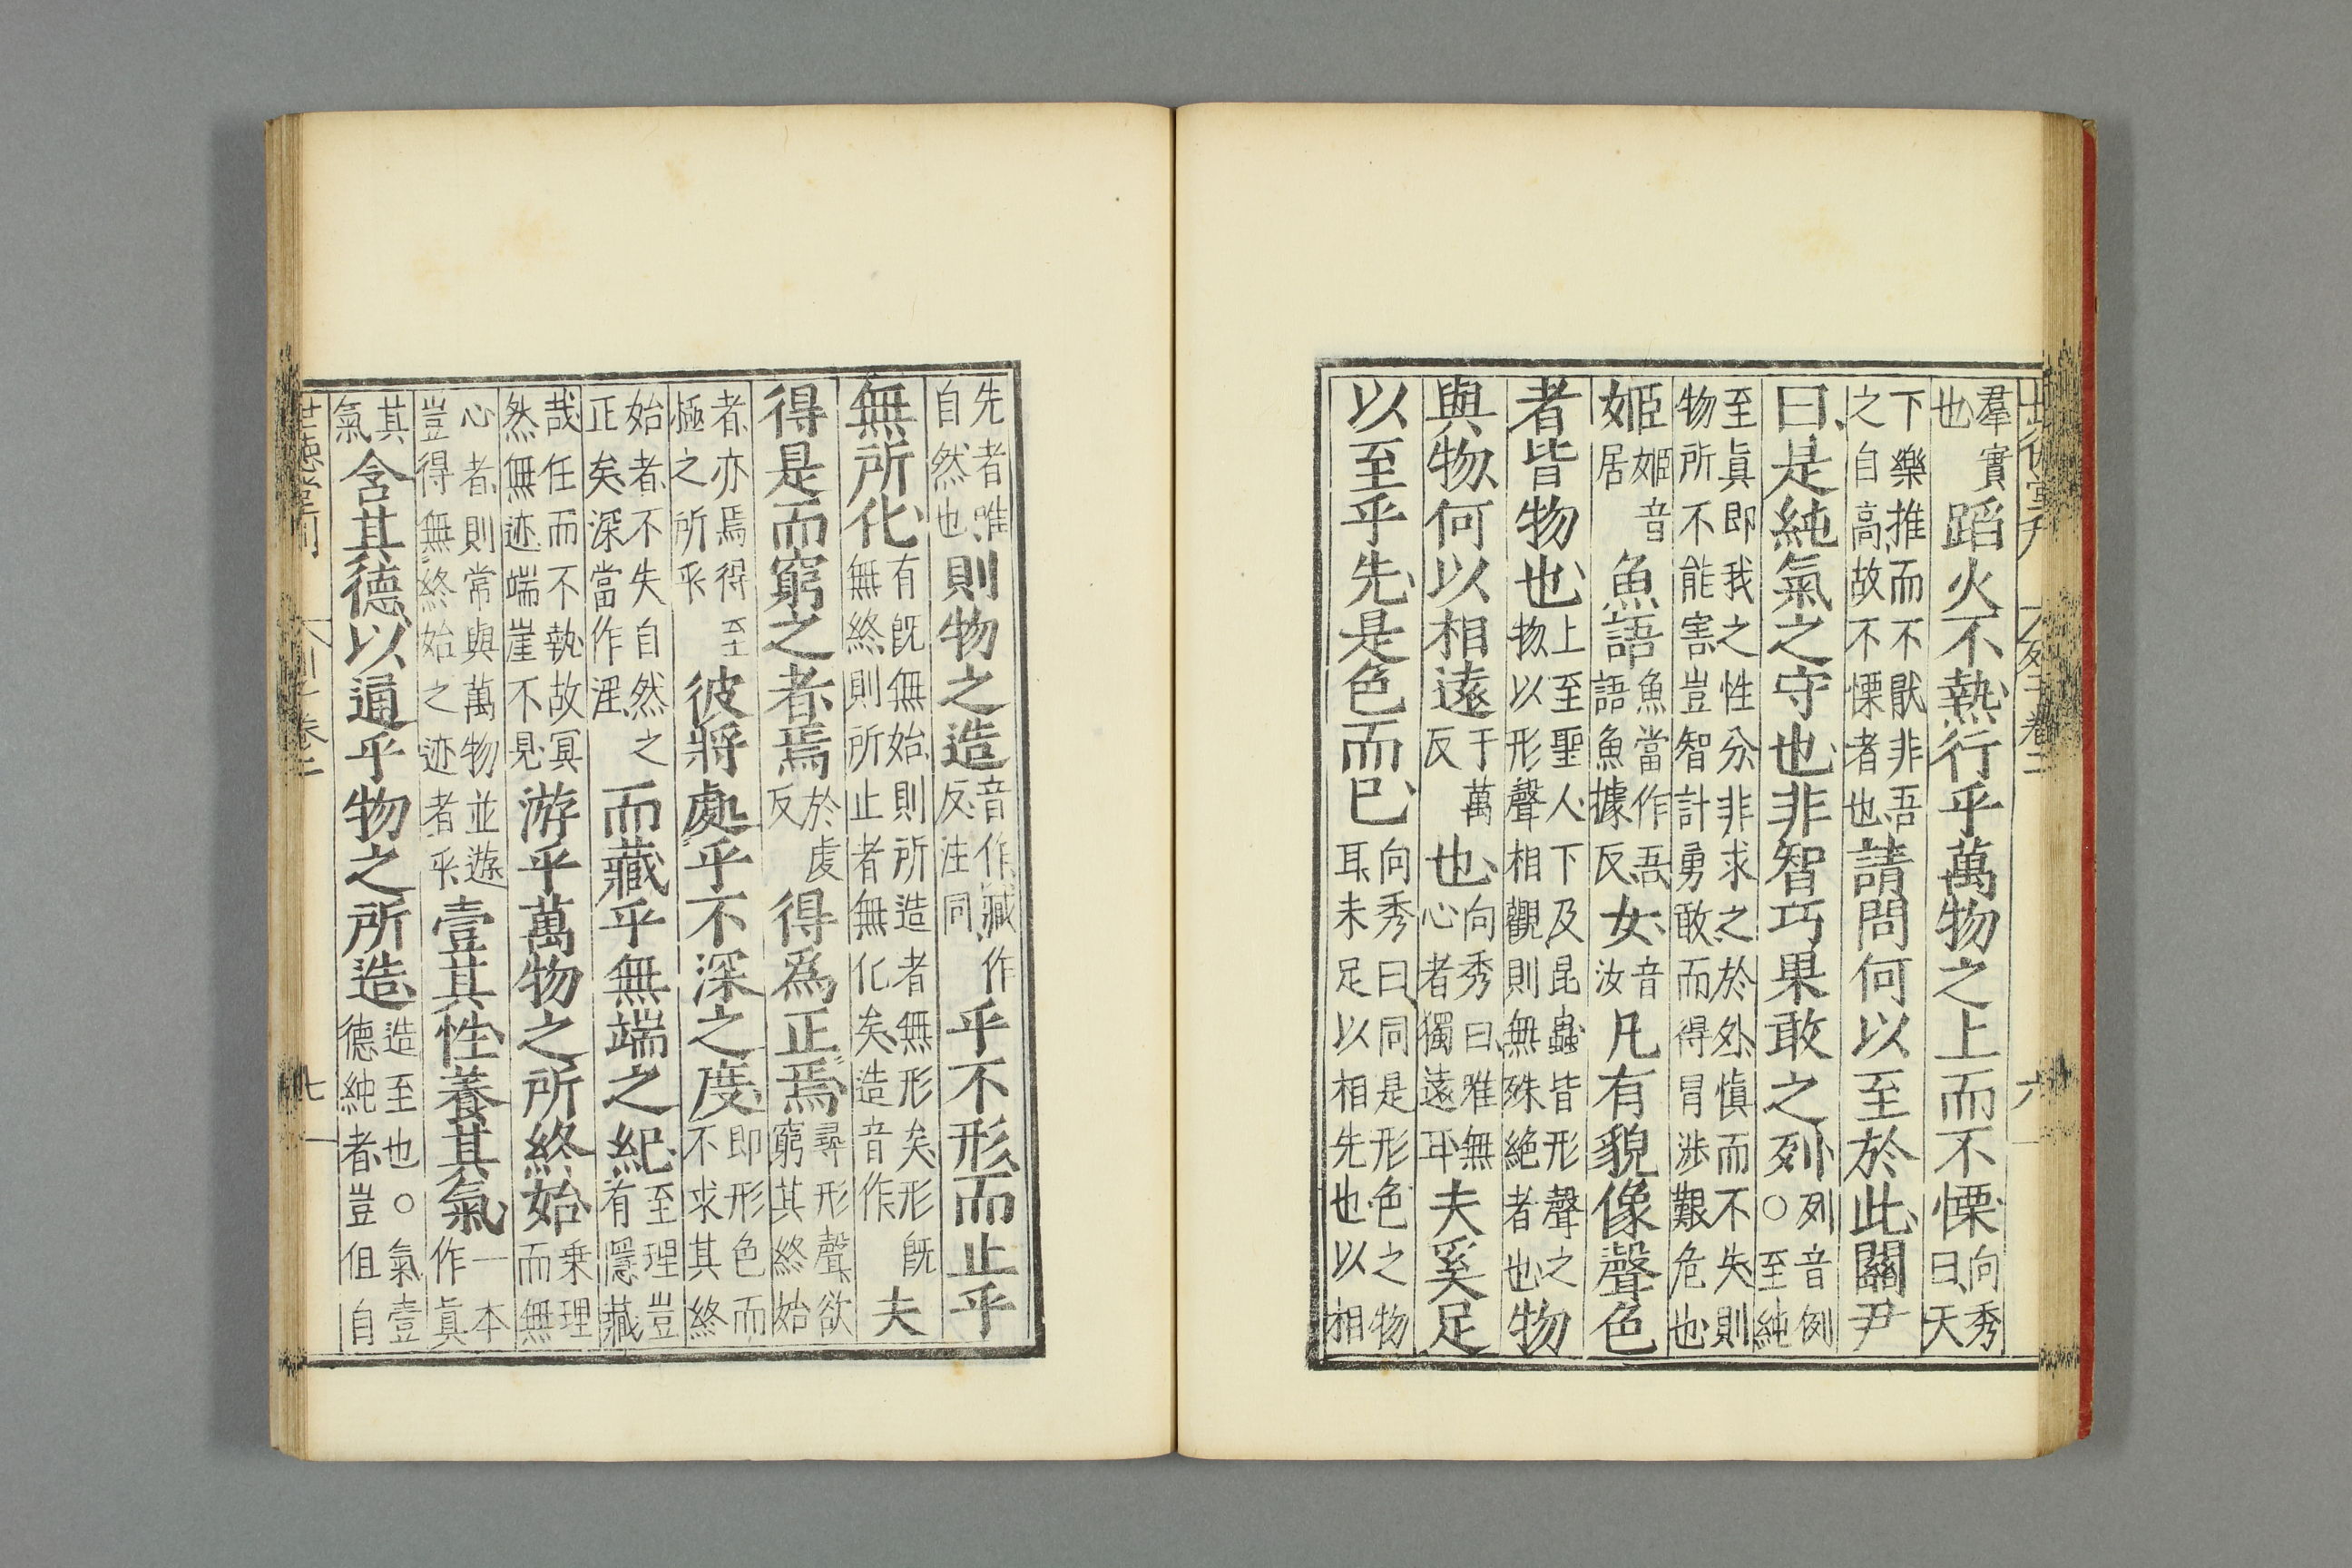 世德堂刊 列子卷二 六
羣實也蹈火不熱行乎萬物之上而不慄向秀曰天
下樂推而不猒非吾之自高故不慄者也請問何以至於此關尹
曰是純氣之守也非智巧果敢之列列音例○至純
至眞即我之性分非求之於外慎而不失則物所不能害豈智計勇敢而得冒涉艱危也
姬姬音居魚語魚當作吾語魚據反女音汝凡有貌像聲色
者皆物也上至聖人下及昆蟲皆形聲之物以形聲相觀則無殊絶者也物
與物何以相遠于萬反也向秀曰唯無心者獨遠耳夫奚足
以至乎先是色而已向秀曰同是形色之物耳未足以相先也以相
先者唯自然也則物之造音作藏作反注同乎不形而止乎
無所化有旣無始則所造者無形矣形旣無終則所止者無化矣造音作夫
得是而窮之者焉於虔反得爲正焉尋形聲欲窮其終始
者亦焉得至極之所乎彼將處乎不深之度即形色而不求其終
始者不失自然之正矣深當作淫而藏乎無端之紀至理豈有隱藏
哉任而不執故冥然無迹端崖不見游乎萬物之所終始乗理而無
心者則常與萬物並遊豈得無終始之迹者乎壹其性養其氣一本作眞
其氣含其德以通乎物之所造造至也○氣壹德純者豈但自
世德堂刊 列子卷二 七